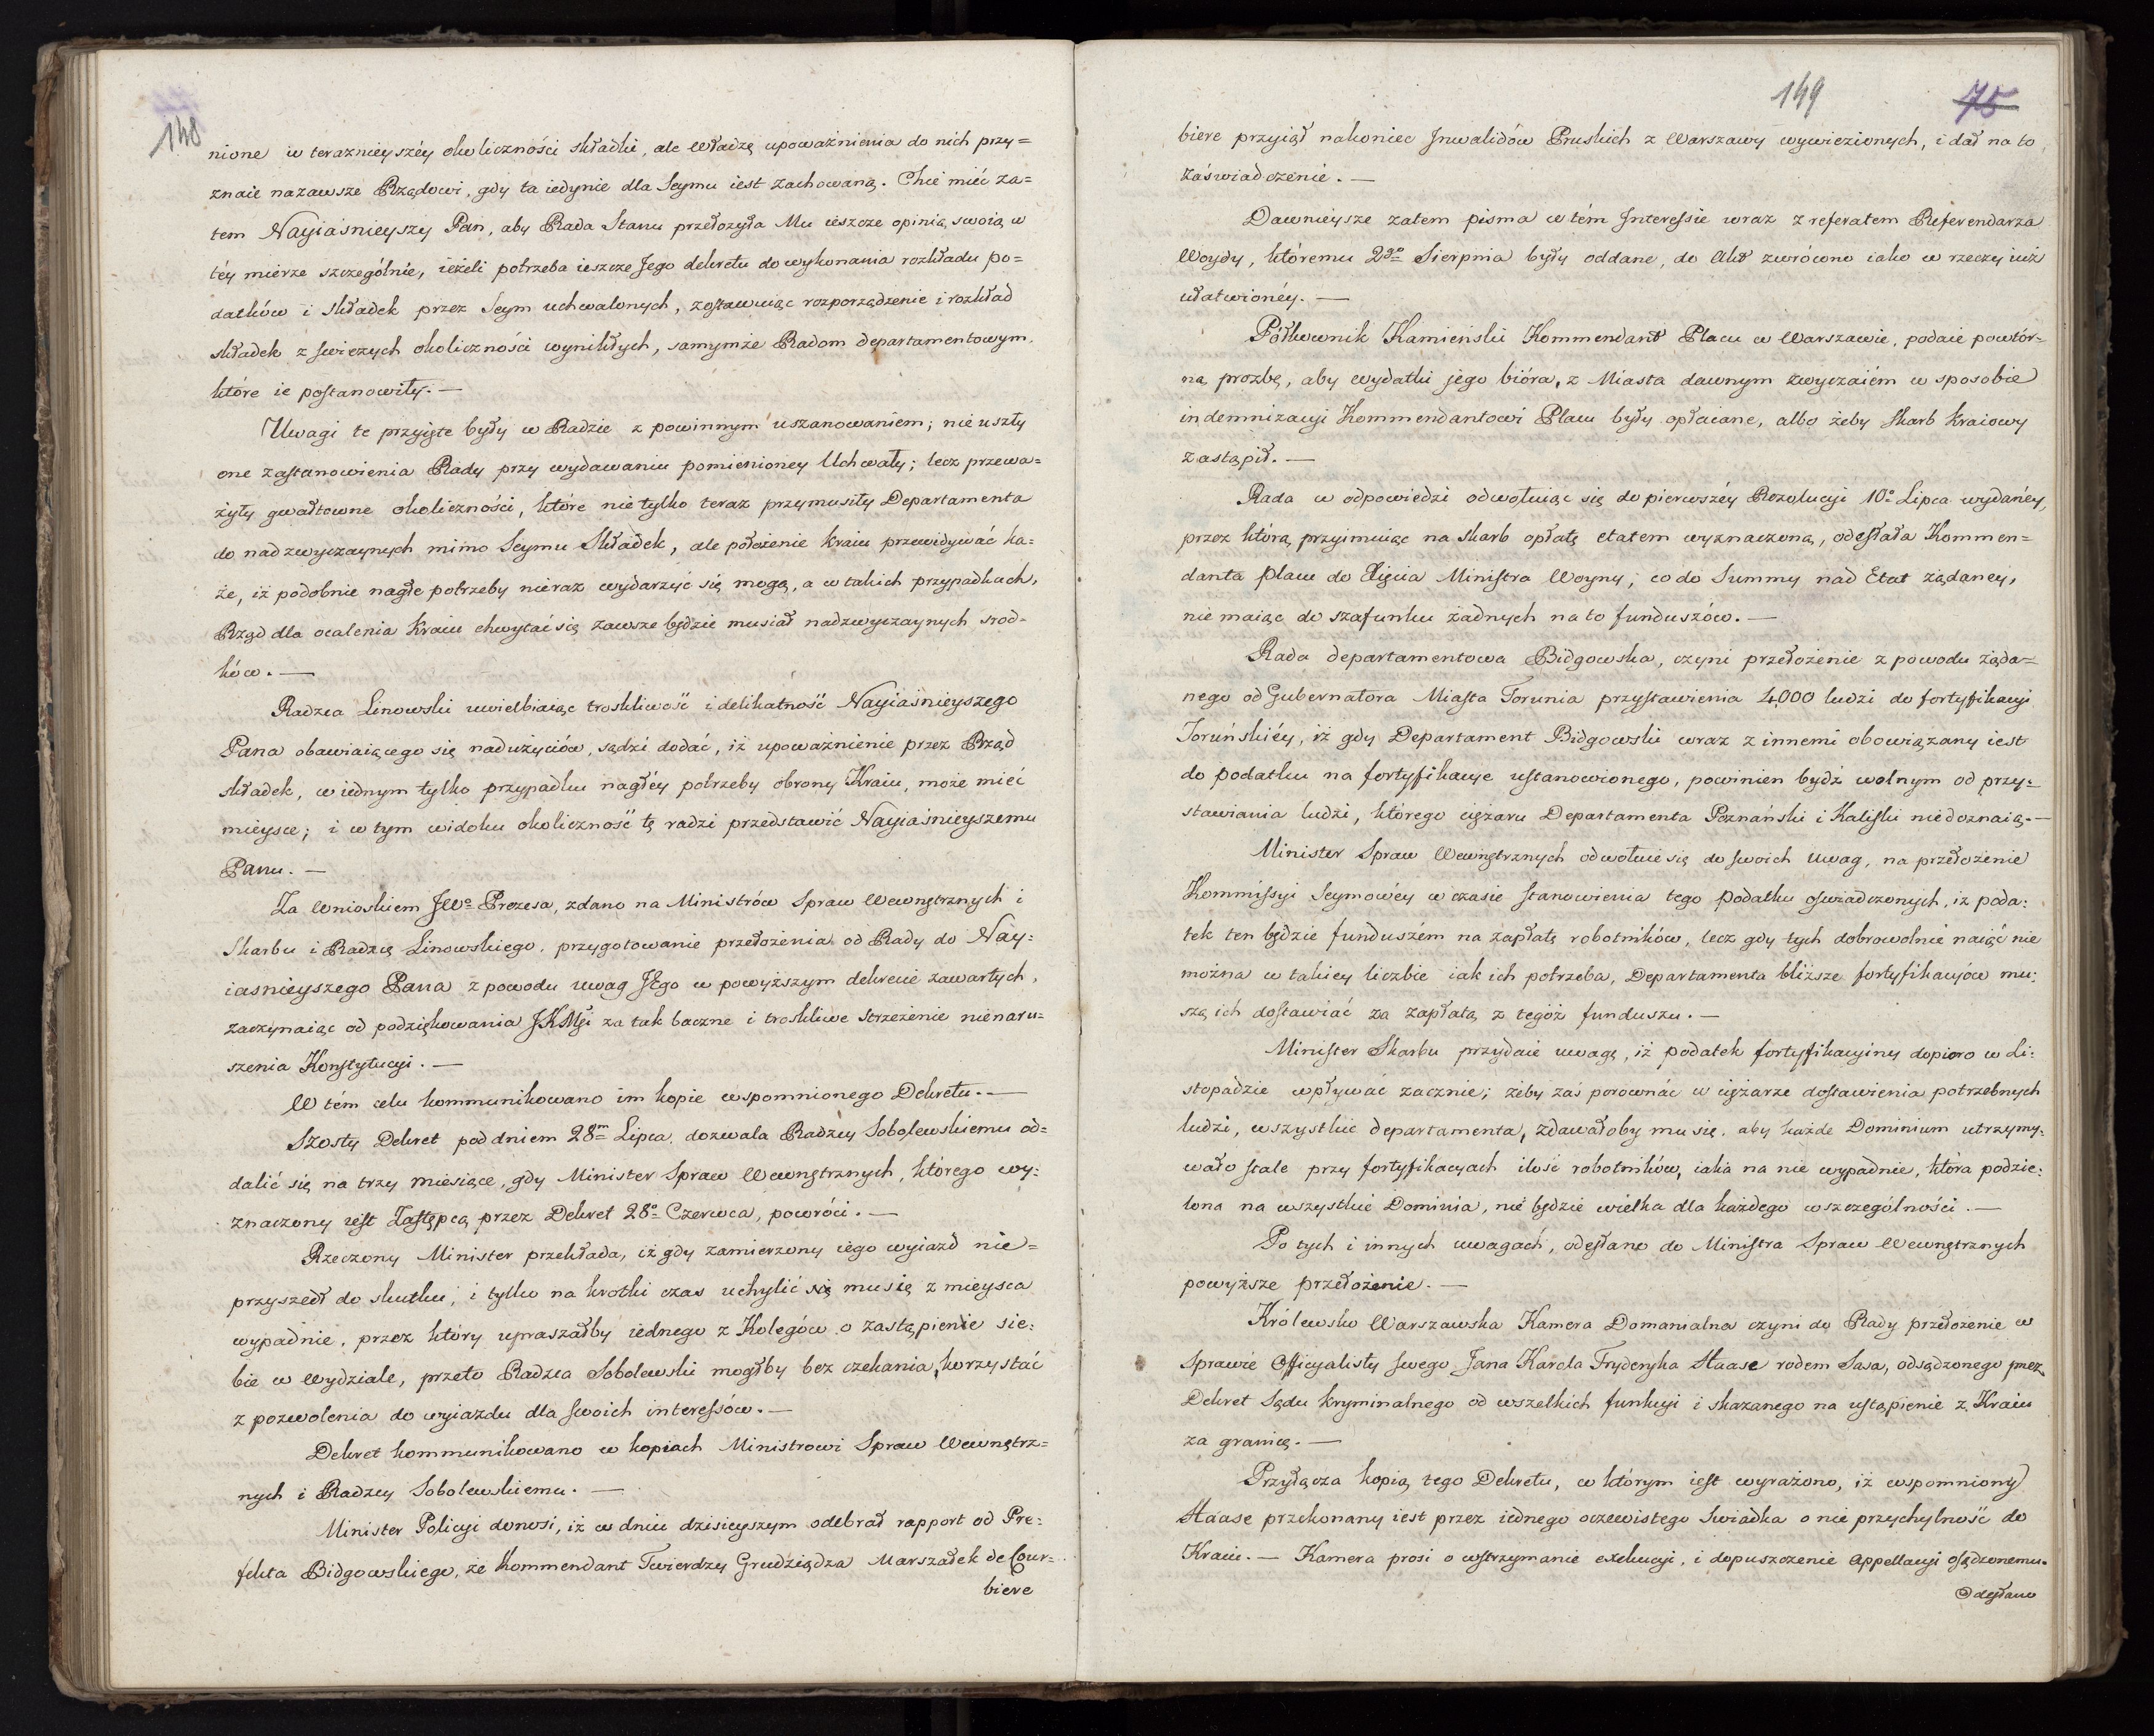 148
nione w teraznieyszéy okoliczności składki, ale władzę upoważnienia do nich przy=
znaie nazawsze Rządowi, gdy ta iedynie dla Seymu iest zachowaną. Chce mieć za=
tem Nayiaśnieyszy Pan, aby Rada Stanu przełożyła Mu ieszcze opinią swoią w
téy mierze szczególnie, ieżeli potrzeba ieszcze Jego dekretu do wykonania rozkładu po=
datków i składek przez Seym uchwalonych, zostawuiąc rozporządzenie i rozkład
składek z swieżych okoliczności wynikłych, samymże Radom departamentowym,
które ie postanowiły. —
Uwagi te przyięte były w Radzie z powinnym uszanowaniem; nie uszły
one zastanowienia Rady przy wydawaniu pomienioney Uchwały; lecz przewa=
żyły gwałtowne okoliczności, które nie tylko teraz przymusiły Departamenta
do nadzwyczaynych mimo Seymu Składek, ale położenie kraiu przewidywać ka=
że, iż podobnie nagłe potrzeby nieraz wydarzyć się mogą, a w takich przypadkach,
Rząd dla ocalenia Kraiu chwytać się zawsze będzie musiał nadzwyczaynych srod=
ków. —
Radzca Linowski uwielbiaiąc troskliwość i delikatność Nayiaśnieyszego
Pana obawiaiącego się nadużyciów, sądzi dodać, iż upoważnienie przez Rząd
składek, w iednym tylko przypadku nagłéy potrzeby obrony Kraiu, może mieć
mieysce; i w tym widoku okoliczność tę radzi przedstawić Nayiaśnieyszemu
Panu. —
Za Wnioskiem JWo Prezesa, zdano na Ministrów Spraw Wewnętrznych i
Skarbu i Radzcę Linowskiego, przygotowanie przełożenia od Rady do Nay=
iasnieyszego Pana z powodu uwag JEgo w powyższym dekrecie zawartych,
zaczynaiąc od podziękowania JKMci za tak baczne i troskliwe strzeżenie nienaru=
szenia Konstytucyi. —
W tém celu kommunikowano im kopie wspomnionego Dekretu. —
Szosty Dekret pod dniem 28m Lipca, dozwala Radzcy Sobolewskiemu od=
dalić się na trzy miesiące, gdy Minister Spraw Wewnętrznych, którego wy=
znaczony iest Zastępcą przez Dekret 28o Czerwca, powróci. —
Rzeczony Minister przekłada, iż gdy zamierzony iego wyiazd nie=
przyszedł do skutku, i tylko na krotki czas uchylić się mu się z mieysca
wypadnie, przez który upraszałby iednego z Kolegów o zastąpienie sie=
bie w Wydziale, przeto Radzca Sobolewski mogłby bez czekania, korzystać
z pozwolenia do wyiazdu dla swoich interessów. —
Dekret kommunikowano w kopiach Ministrowi Spraw Wewnętrz=
nych i Radzcy Sobolewskiemu. —
Minister Policyi donosi, iż w dniu dzisieyszym odebrał rapport od Pre=
fekta Bidgowskiego, że Kommendant Twierdzy Grudziądza Marszałek de Cour=
biere
149 75
biere przyiął nakoniec Inwalidów Pruskich z Warszawy wywiezionych, i dał na to
zaświadczenie. —
Dawnieysze zatem pisma w tém Interessie wraz z referatem Referendarza
Woydy, któremu 2go Sierpnia były oddane, do Akt zwrócono iako w rzeczy iuż
ułatwionéy. —
Półkownik Kamienski Kommendant Placu w Warszawie, podaie powtór=
ną prozbę, aby wydatki jego bióra, z Miasta dawnym zwyczaiém w sposobie
indemnizacyi Kommendantowi Placu były opłacane, albo żeby Skarb kraiowy
zastąpił. —
Rada w odpowiedzi odwołuiąc się do pierwszéy Rezolucyi 10o Lipca wydanéy,
przez którą przyimuiąc na Skarb opłatę etatem wyznaczoną, odesłała Kommen=
danta placu do Xięcia Ministra Woyny; co do Summy nad Etat żądaney,
nie maiąc do szafunku żadnych na to funduszów. —
Rada departamentowa Bidgowska, czyni przełożenie z powodu żąda=
nego od Gubernatora Miasta Torunia przystawienia 4000 ludzi do fortyfikacyi
Toruńskiéy, iż gdy Departament Bidgowski wraz z innemi obowiązany iest
do podatku na fortyfikacye ustanowionego, powinien bydź wolnym od przy=
stawiania ludzi, którego ciężaru Departamenta Poznański i Kaliski niedoznaią. —
Minister Spraw Wewnętrznych odwołuie się do swoich Uwag, na przełożenie
Kommissyi Seymowéy w czasie stanowienia tego podatku oświadczonych, iż poda=
tek ten będzie funduszém na zapłatę robotników, lecz gdy tych dobrowolnie naiąć nie
można w takiey liczbie iak ich potrzeba, Departamenta bliższe fortyfikacyów mu=
szą ich dostawiać za zapłatą z tegóż funduszu. —
Minister Skarbu przydaie uwagę, iż podatek fortyfikacyiny dopiero w Li=
stopadzie wpływać zacznie; żeby zaś porownać w ciężarze dostawienia potrzebnych
ludzi, wszystkie departamenta, zdawałoby mu się, aby każde Dominium utrzymy=
wało stale przy fortyfikacyach ilość robotników, iaka na nie wypadnie, która podzie=
lona na wszystkie Dominia, nie będzie wielka dla każdego w szczególności. —
Po tych i innych uwagach, odesłano do Ministra Spraw Wewnętrznych
powyższe przełożenie. —
Królewsko Warszawska Kamera Domanialna czyni do Rady przełożenie w
Sprawie Officyalisty swego Jana Karola Fryderyka Haase rodem Sasa, odsądzonego przez
Dekret Sądu kryminalnego od wszelkich funkcyi i skazanego na ustąpienie z Kraiu
za granicę. —
Przyłącza kopią tego Dekretu, w którym iest wyrażono, iż wspomniony
Haase przekonany iest przez iednego oczewistego Swiadka o nie przychylność do
Kraiu. — Kamera prosi o wstrzymanie exekucyi, i dopuszczenie Appellacyi osądzonemu.
Odesłano